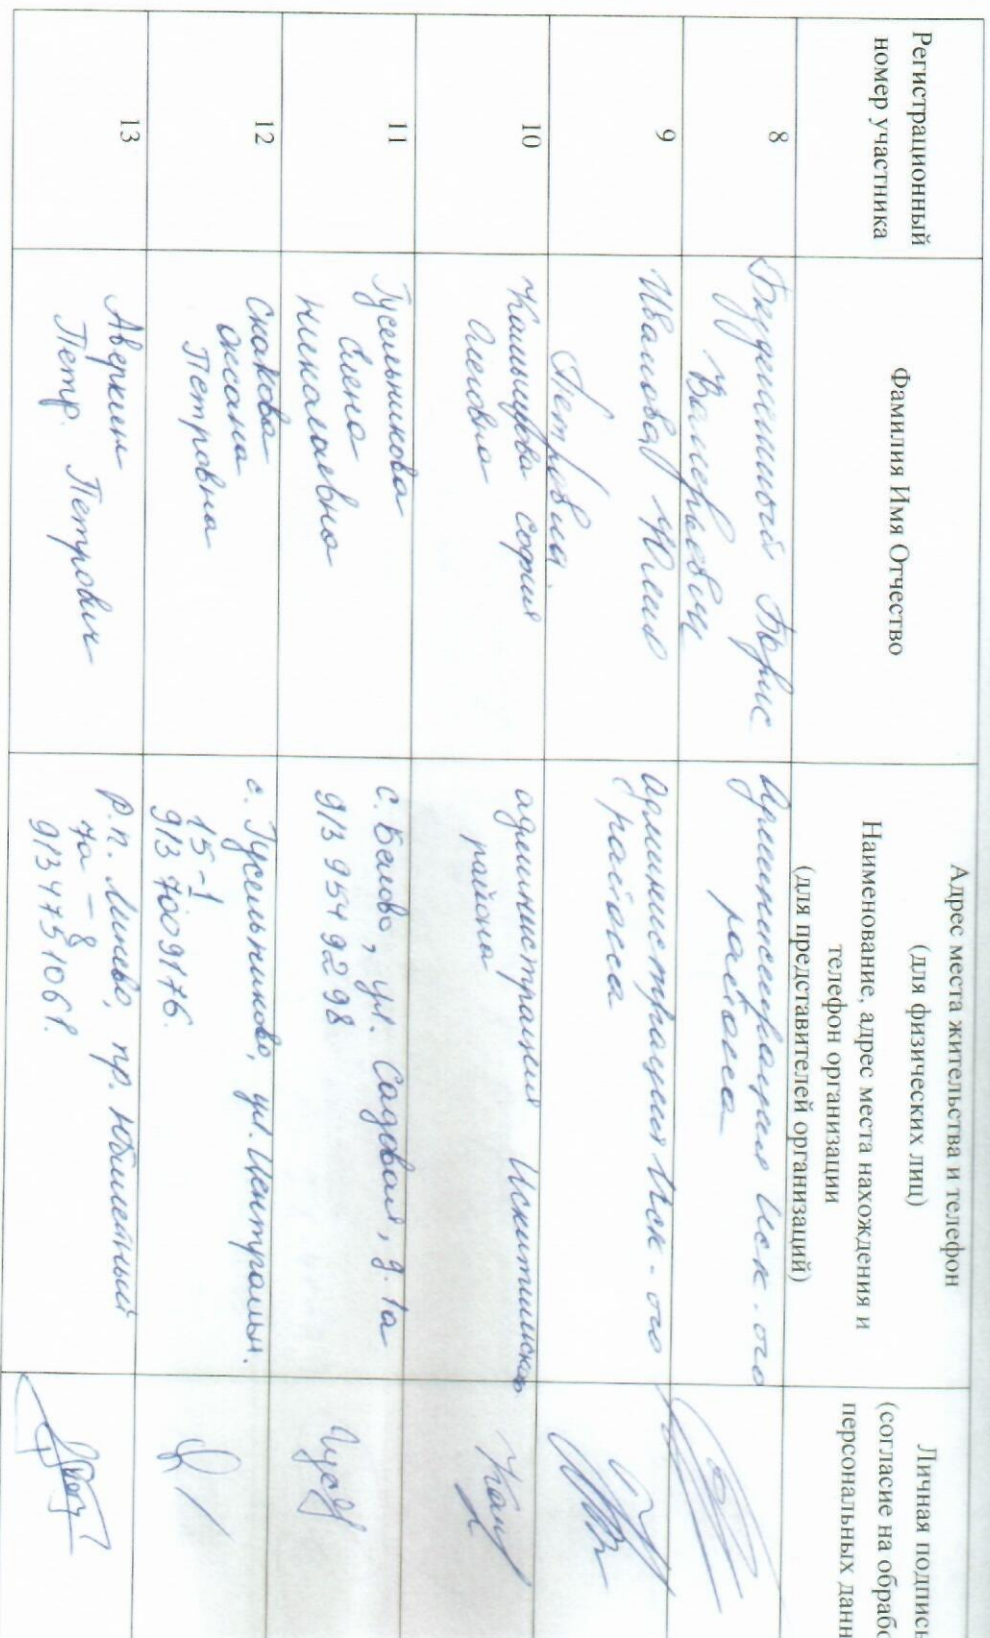 Регистрационный
номер участника
Фамилия Имя Отчество
Адрес места жительства и телефон
(для физических лиц)
Наименование, адрес места нахождения и
телефон организации
(для представителей организаций)
Личная подпись
(согласие на обрабо
персональных данн
8
Борис
Валерьевич
Администрация Иск-ого
района
9
Иванова Юлия
Петровна
Администрация Иск-ого
района
10
София
Олеговна
администрация Искитимского
района
11
Гусельникова
Елена
Николаевна
с. Белово, ул. Садовая, д. 1а
913 954 92 98
12
Скакова
Оксана
Петровна
с. Гусельниково, ул. Центральн.
15-1
913 700 9176.
13
Аверкин
Петр Петрович
р.п. Линево, пр. Юбилейный
7а - 8
913 475 1061.